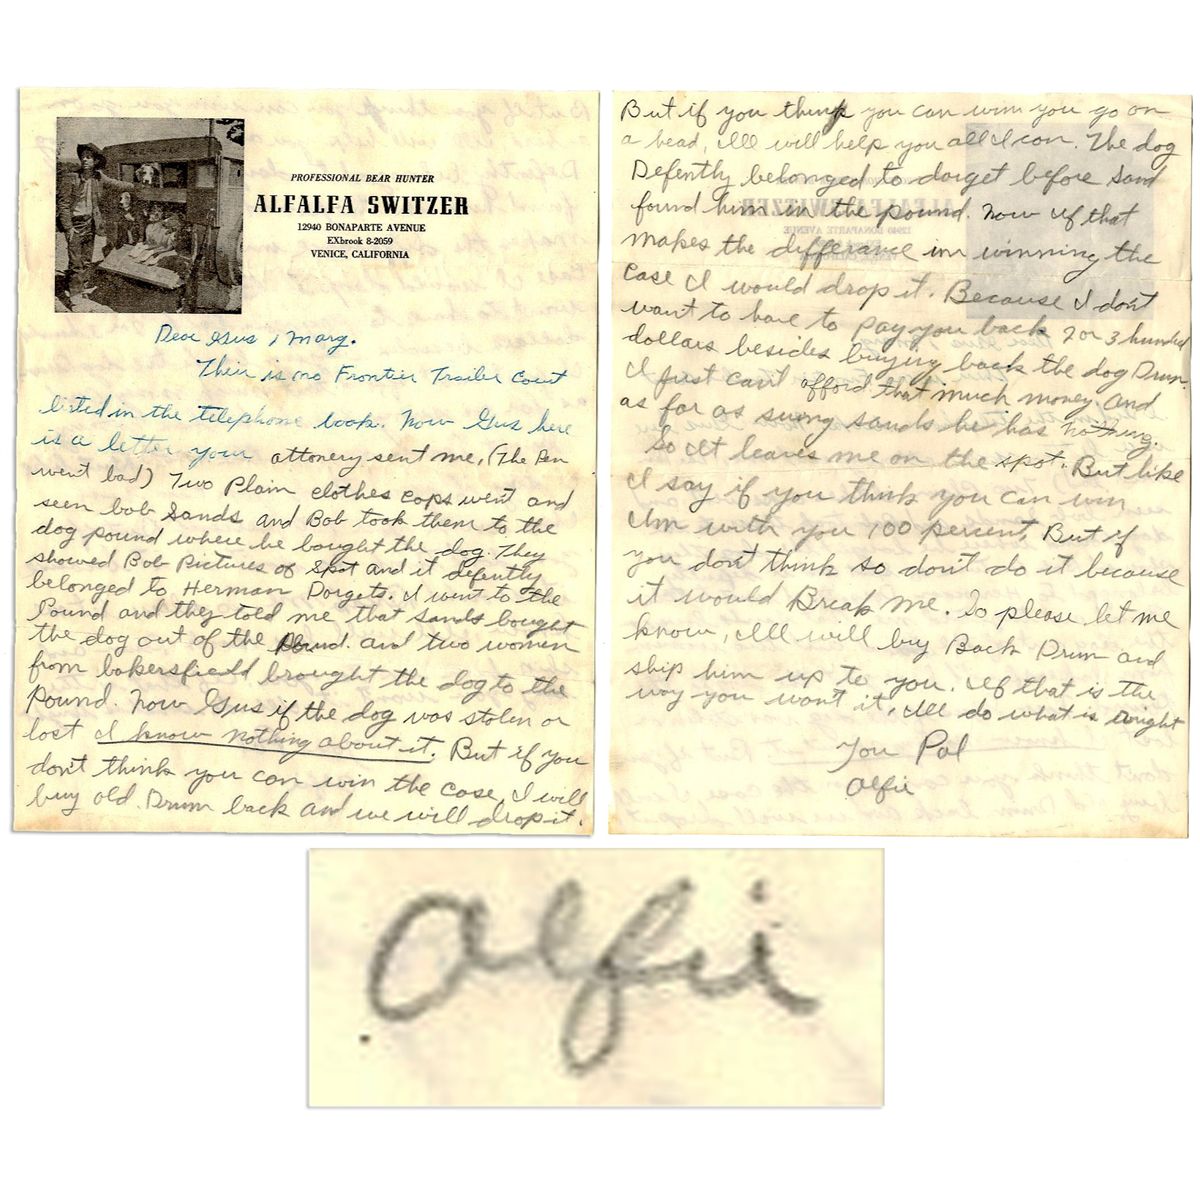 PROFESSIONAL BEAR HUNTER
ALFALFA SWITZER
12940 BONAPARTE AVENUE
EXbrook 8-2059
VENICE, CALIFORNIA
Dear Gus & Marg.
Their is no Frontier Trailer Court
listed in the telephone book. Now Gus here
is a letter your attonery sent me, (The Pen
went bad) Two Plain clothes cops went and
seen bob Sands and Bob took them to the
dog pound where he bought the dog. They
showed Bob Pictures of Spot and it defently
belonged to Herman Dorgets. I went to the
Pound and they told me that Sands bought
the dog out of the Pound. and two women
from bakersfield brought the dog to the
pound. Now Gus if the dog was stolen or
lost I know nothing about it. But if you
don't think you can win the case, I will
buy old Drum back and we will drop it.
But if you think you can win you go on
a head, Ill will help you all I can. The dog
Defently belonged to dorget before Sand
found him in the pound. Now if that
makes the differance in winning the
case I would drop it. Because I don't
want to have to pay you back 2 or 3 hundred
dollars besides buying back the dog Drum.
I just can't afford that much money. and
as far as suing sands he has nothing.
So it leaves me on the spot. But like
I say if you think you can win
I'm with you 100 percent. But if
you don't think so don't do it because
it would Break me. So please let me
know, Ill will buy Back Drum and
ship him up to you. if that is the
way you want it, Ill do what is wright
You Pal
Alfie
Alfie